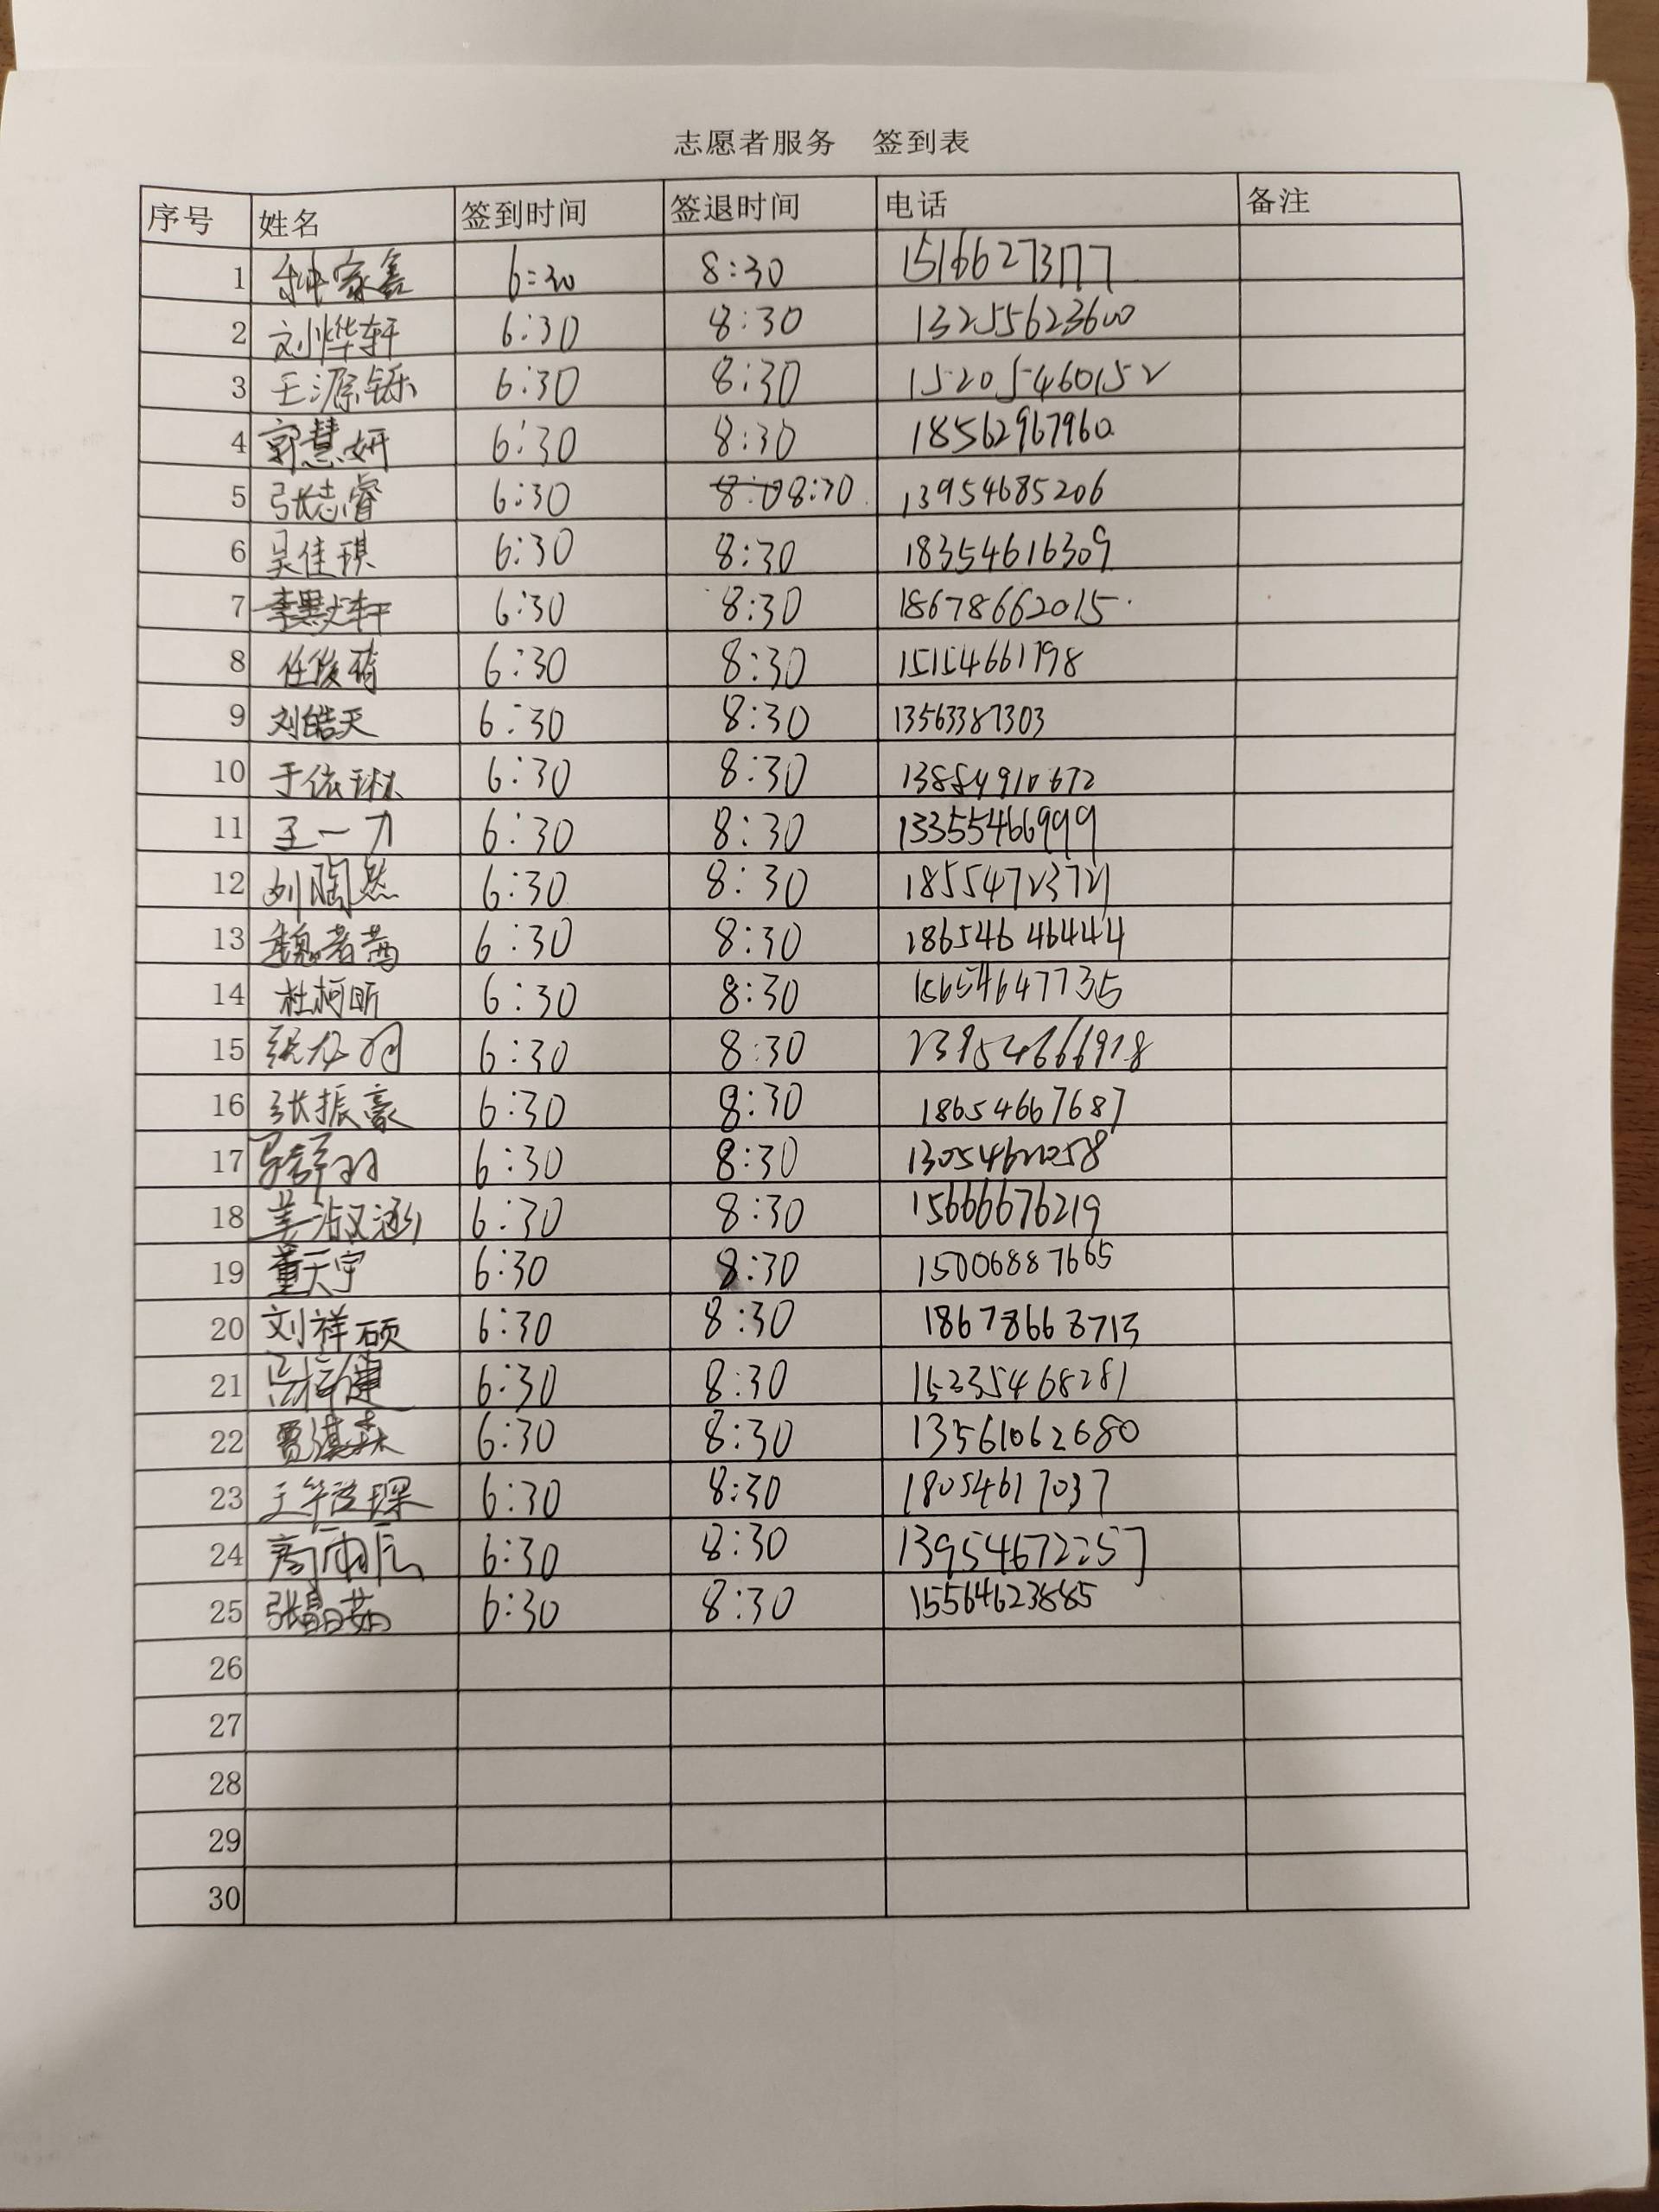 志愿者服务 签到表
序号 姓名 签到时间 签退时间 电话 备注
1 家鑫 6:30 8:30
2 刘烨轩 6:30 8:30 13255623600
3 王源铄 6:30 8:30 15205460152
4 郭慧妍 6:30 8:30 18562967960
5 张志睿 6:30 8:30 13954685206
6 吴佳琪 6:30 8:30 18354616309
7 李墨轩 6:30 8:30 18678662015
8 任俊 6:30 8:30 15154661798
9 刘皓天 6:30 8:30 13563387303
10 于依琳 6:30 8:30 13884910672
11 王一力 6:30 8:30 13355466999
12 刘陶然 6:30 8:30 18554723721
13 魏茜 6:30 8:30 18654646444
14 杜柯昕 6:30 8:30
15 6:30 8:30
16 张振豪 6:30 8:30 18654667687
17 6:30 8:30
18 姜淑涵 6:30 8:30 15666676219
19 董天宇 6:30 8:30 15006887665
20 刘祥硕 6:30 8:30 18678668713
21 6:30 8:30 15235468281
22 贾淇森 6:30 8:30 13561062680
23 王 琛 6:30 8:30 18054617037
24 6:30 8:30 13954672257
25 张 茹 6:30 8:30 15564623885
26
27
28
29
30